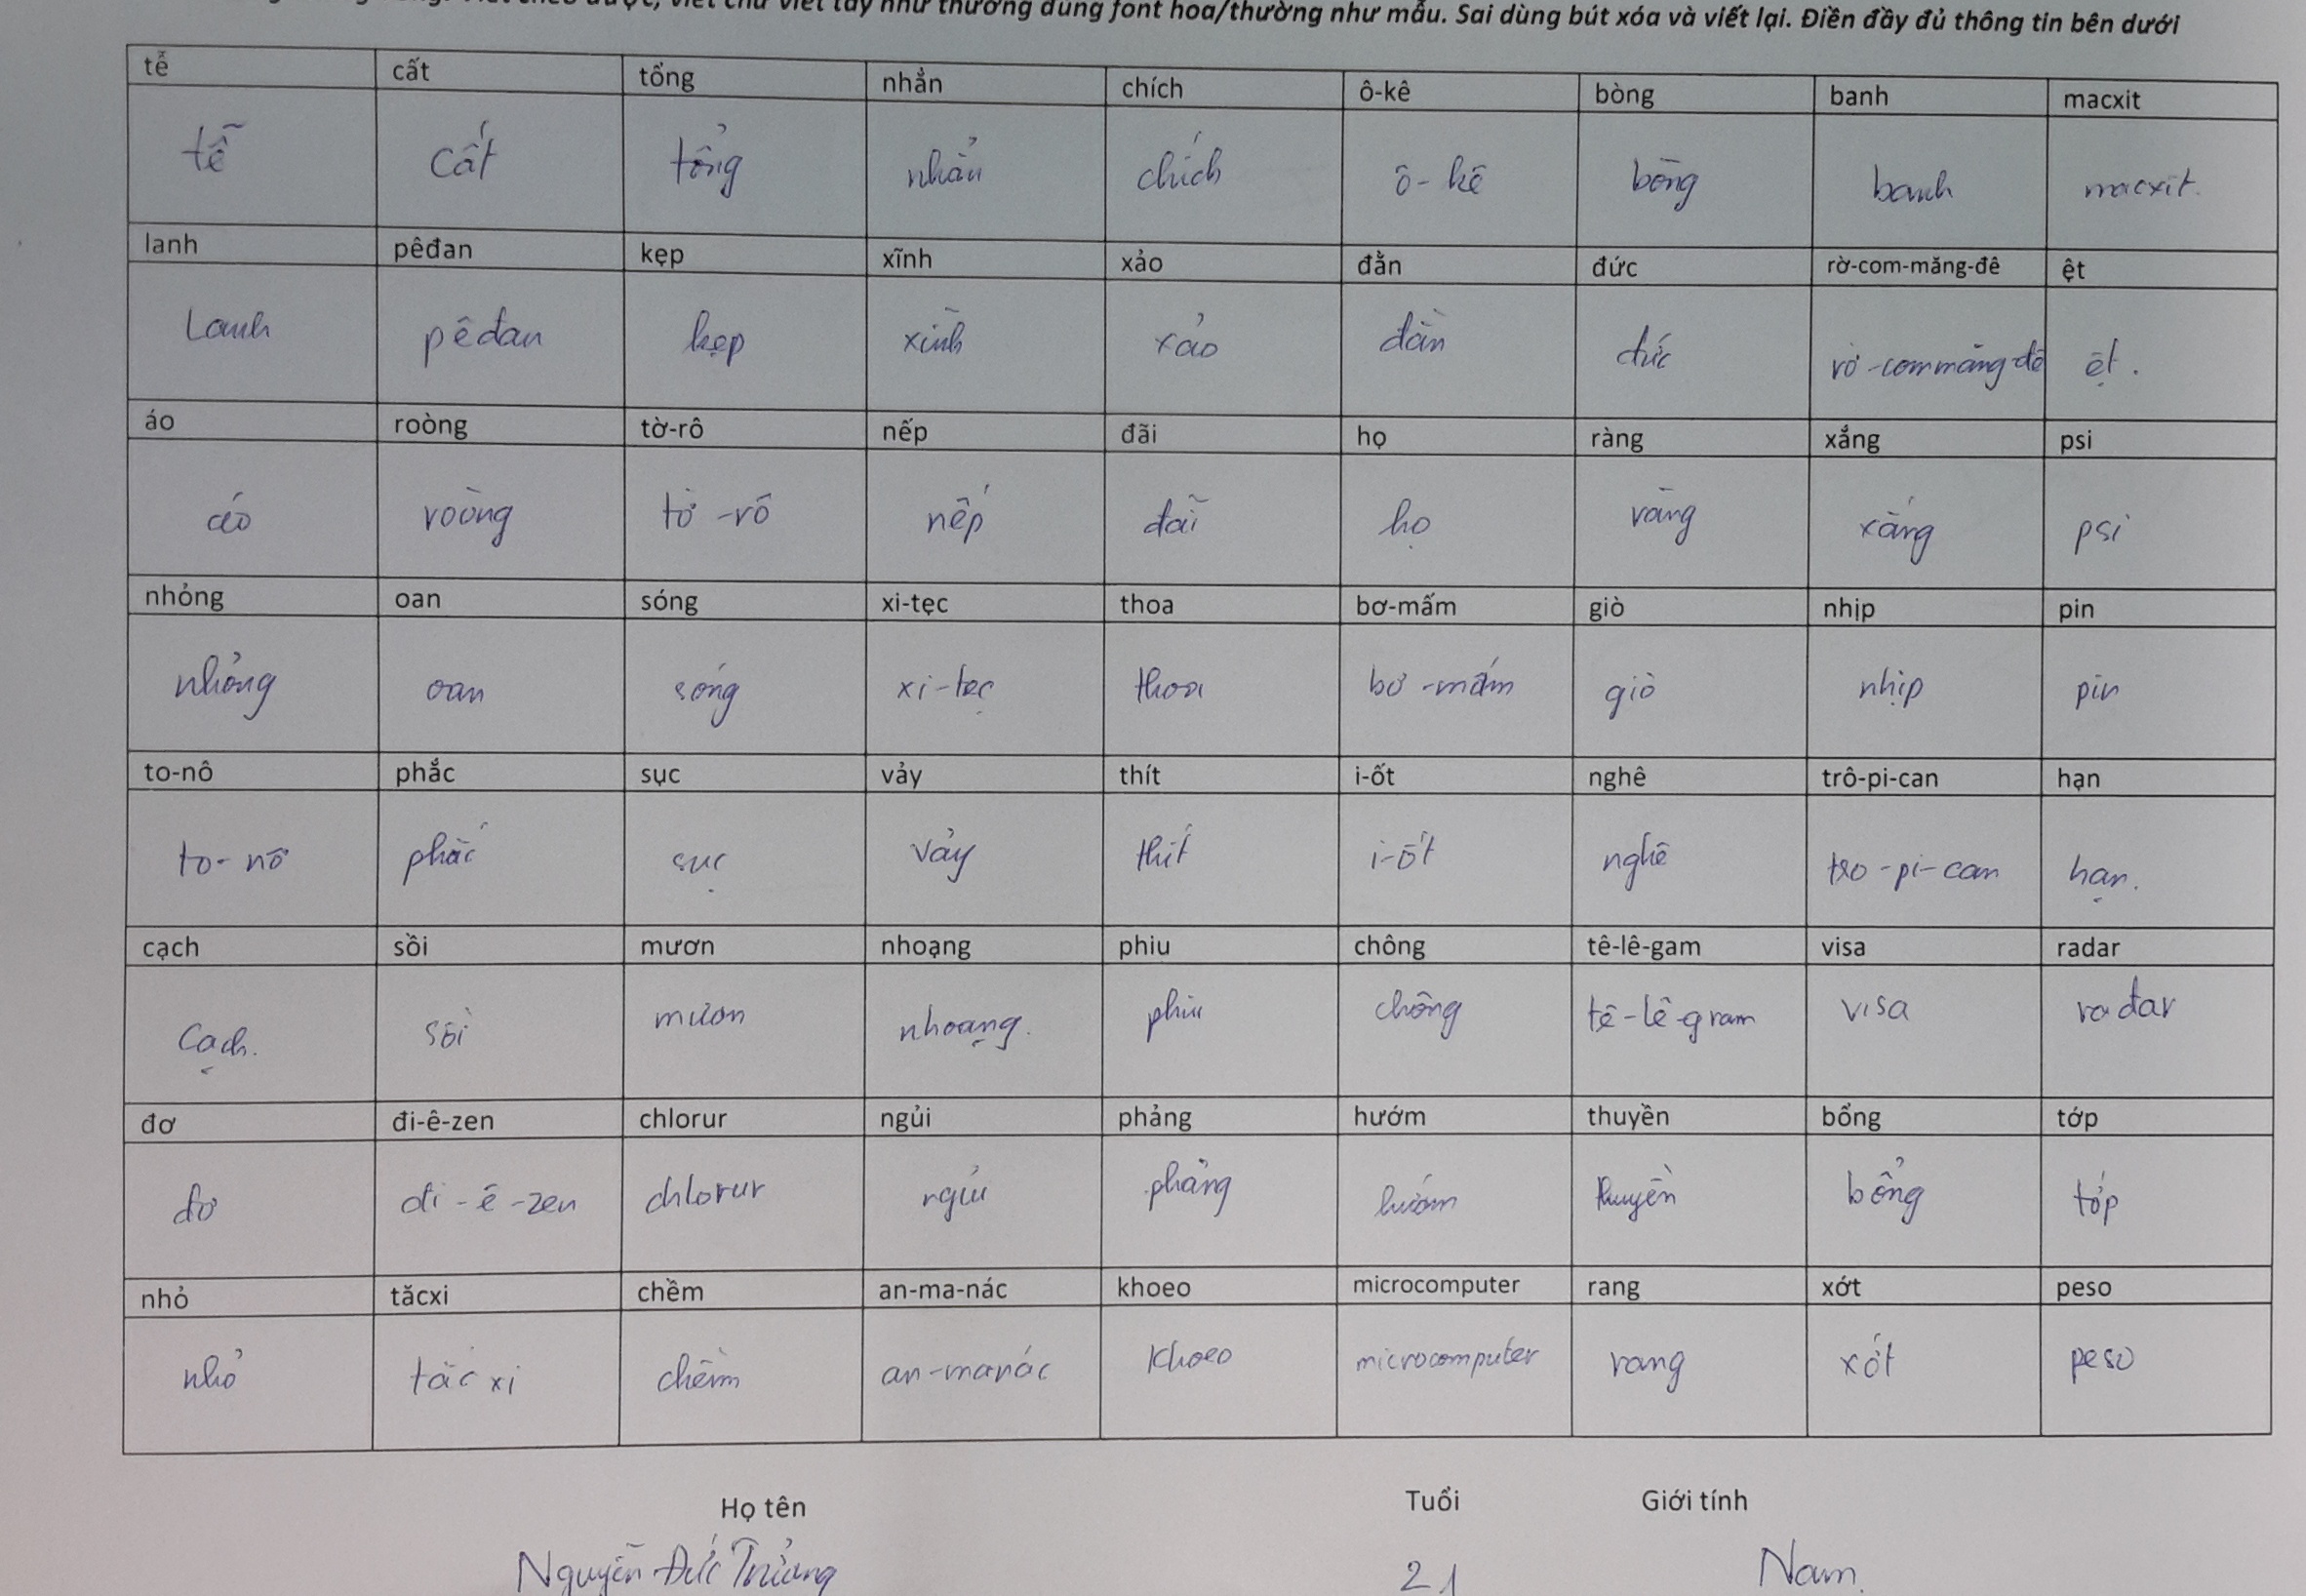 viết chữ viết tay như thường dùng font hoa/thường như mẫu. Sai dùng bút xóa và viết lại. Điền đầy đủ thông tin bên dưới
tễ cất tổng nhẳn chích ô-kê bòng banh macxit
tễ cất tổng nhẳn chích ô-kê bòng banh macxit.
lanh pêđan kẹp xĩnh xảo đằn đức rờ-com-măng-đê ệt
Lanh pêđan kẹp xĩnh xảo đằn đức rờ-commăng-đê ệt.
áo roòng tờ-rô nếp đãi họ ràng xắng psi
áo roòng tờ-rô nếp đãi họ ràng xắng psi
nhỏng oan sóng xi-tẹc thoa bơ-mấm giò nhịp pin
nhỏng oan sóng xi-tẹc thoa bơ-mấm giò nhịp pin
to-nô phắc sục vảy thít i-ốt nghê trô-pi-can hạn
to-nô phắc sục vảy thít i-ốt nghê tro-pi-can hạn.
cạch sồi mươn nhoạng phiu chông tê-lê-gam visa radar
cạch. sồi mươn nhoạng. phiu chông tê-lê-gram visa rađar
đơ đi-ê-zen chlorur ngủi phảng hướm thuyền bổng tớp
đơ đi-ê-zen chlorur ngủi phảng hướm thuyền bổng tớp
nhỏ tăcxi chềm an-ma-nác khoeo microcomputer rang xớt peso
nhỏ tăcxi chềm an-manác Khoeo microcomputer rang xớt peso
Họ tên Tuổi Giới tính
Nguyễn Đức 21 Nam.